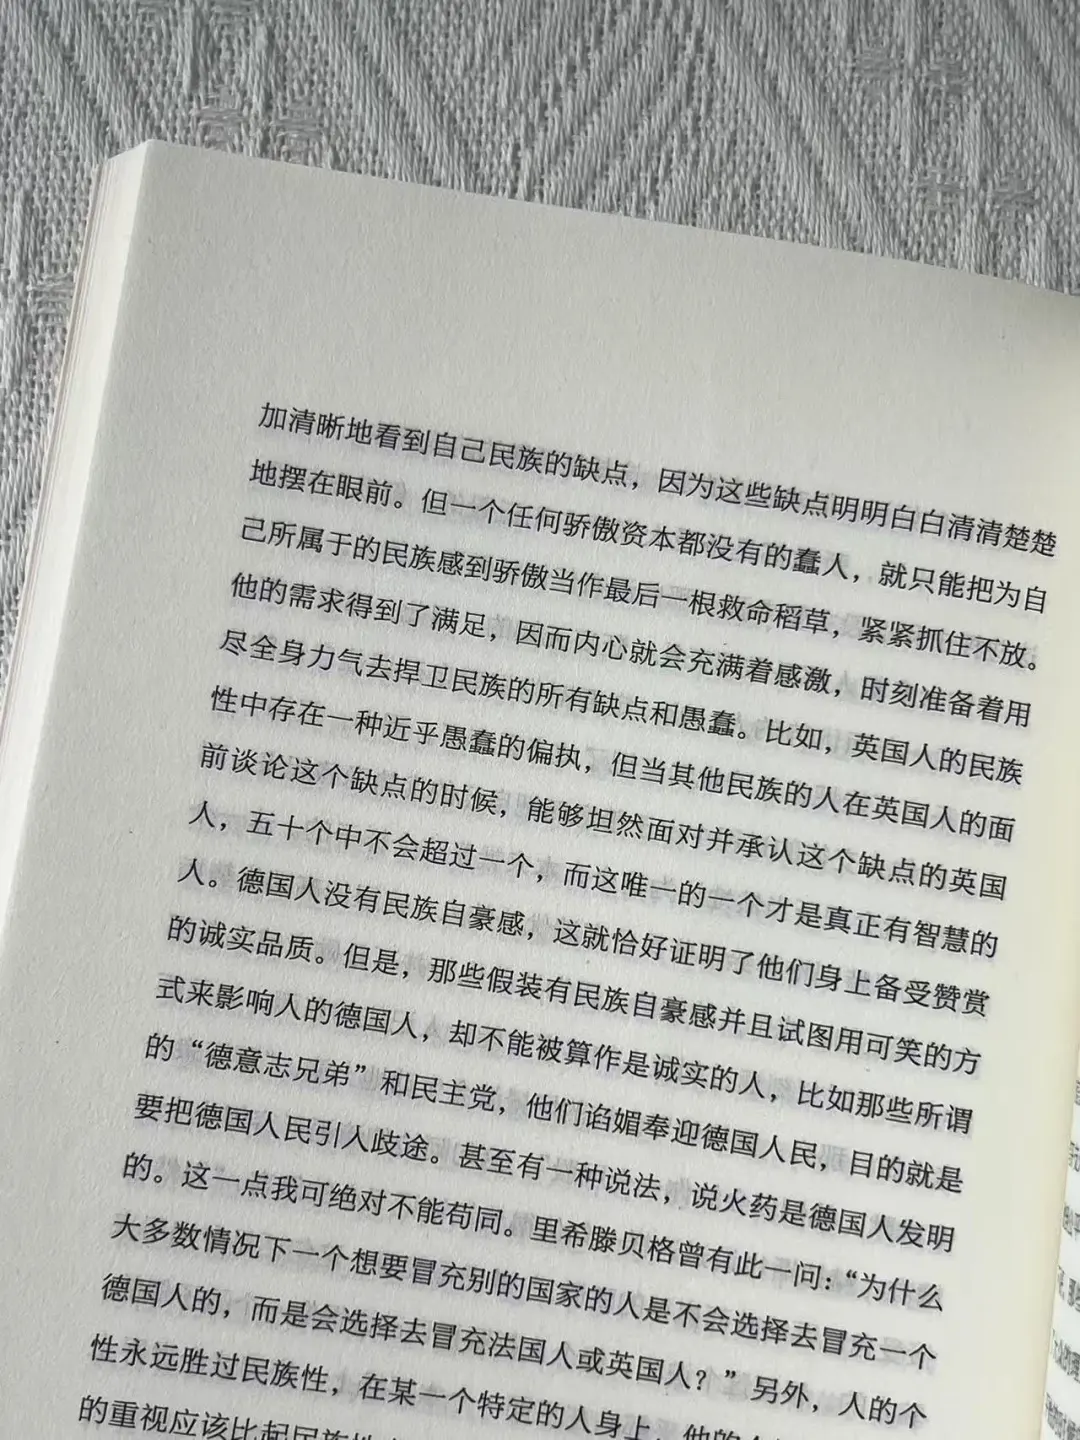 加清晰地看到自己民族的缺点，因为这些缺点明明白白清清楚楚
地摆在眼前。但一个任何骄傲资本都没有的蠢人，就只能把为自
己所属于的民族感到骄傲当作最后一根救命稻草，紧紧抓住不放。
他的需求得到了满足，因而内心就会充满着感激，时刻准备着用
尽全身力气去捍卫民族的所有缺点和愚蠢。比如，英国人的民族
性中存在一种近乎愚蠢的偏执，但当其他民族的人在英国人的面
前谈论这个缺点的时候，能够坦然面对并承认这个缺点的英国
人，五十个中不会超过一个，而这唯一的一个才是真正有智慧的
人。德国人没有民族自豪感，这就恰好证明了他们身上备受赞赏
的诚实品质。但是，那些假装有民族自豪感并且试图用可笑的方
式来影响人的德国人，却不能被算作是诚实的人，比如那些所谓
的“德意志兄弟”和民主党，他们谄媚奉迎德国人民，目的就是
要把德国人民引入歧途。甚至有一种说法，说火药是德国人发明
的。这一点我可绝对不能苟同。里希滕贝格曾有此一问：“为什么
大多数情况下一个想要冒充别的国家的人是不会选择去冒充一个
德国人的，而是会选择去冒充法国人或英国人？”另外，人的个
性永远胜过民族性，在某一个特定的人身上，他的
的重视应该比起民族性